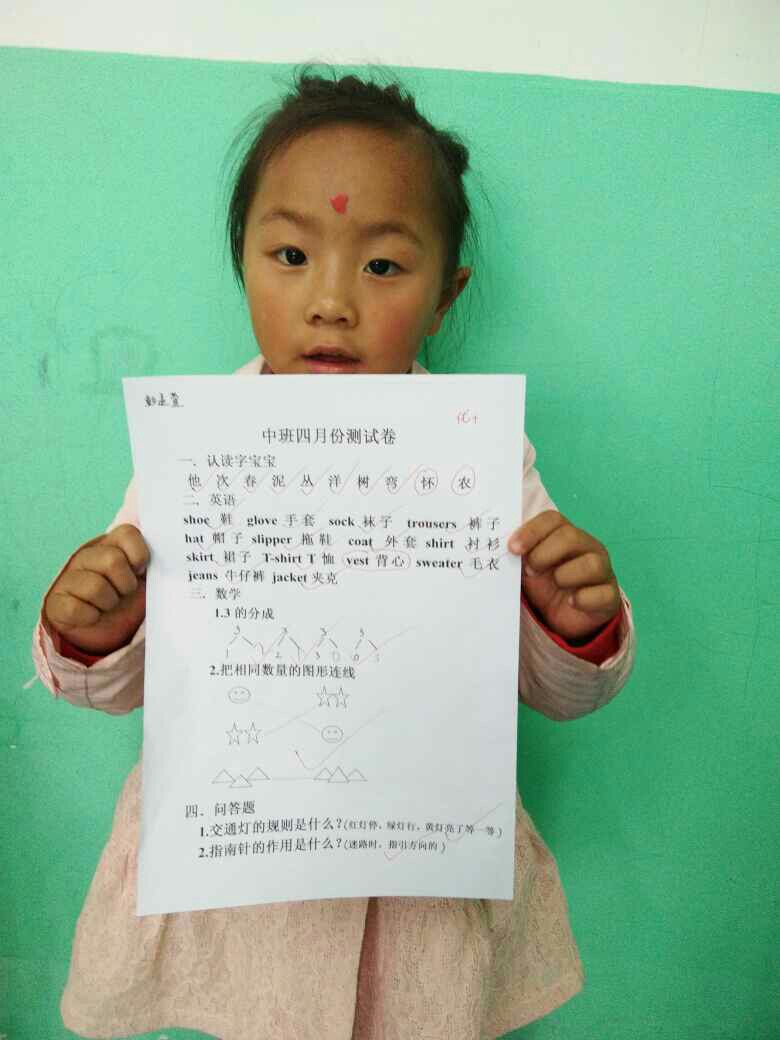 优+
中班四月份测试卷
一．认读字宝宝
他 次 春 泥 丛 洋 树 弯 怀 农
二．英语
shoe 鞋 glove 手套 sock 袜子 trousers 裤子
hat 帽子 slipper 拖鞋 coat 外套 shirt 衬衫
skirt 裙子 T-shirt T 恤 vest 背心 sweater 毛衣
jeans 牛仔裤 jacket 夹克
三．数学
1.3 的分成
3 3 3 3
1 2 2 1 3 0 0 3
2.把相同数量的图形连线
四．问答题
1.交通灯的规则是什么？(红灯停，绿灯行，黄灯亮了等一等)
2.指南针的作用是什么？(迷路时，指引方向的)